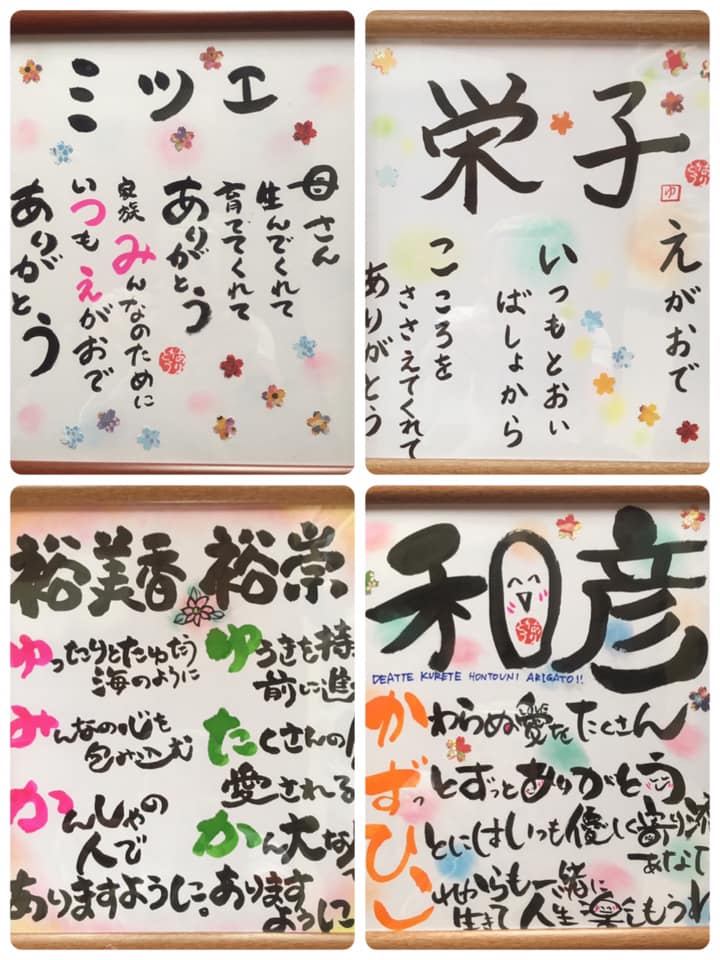 ミツエ
母さん
生んでくれて
育ててくれて
ありがとう
家族みんなのために
いつもえがおで
ありがとう
栄子
ゆ
えがおで
いつもとおい
ばしょから
こころを
ささえてくれて
ありがとう
裕美香 裕崇
ゆったりとたゆたう
海のように
みんなの心も
包み込む
かんしゃの
人で
ありますように。
ゆうきを持
前に進
たくさんの
愛される
かん大な
あります
ように
和彦
DEATTE KURETE HONTOUNI ARIGATO!!
かわらぬ愛をたくさん
ずっとずっとありがとう
ひとにはいつも優しく寄り添
あなた
これからも一緒に
生きて人生楽しもう